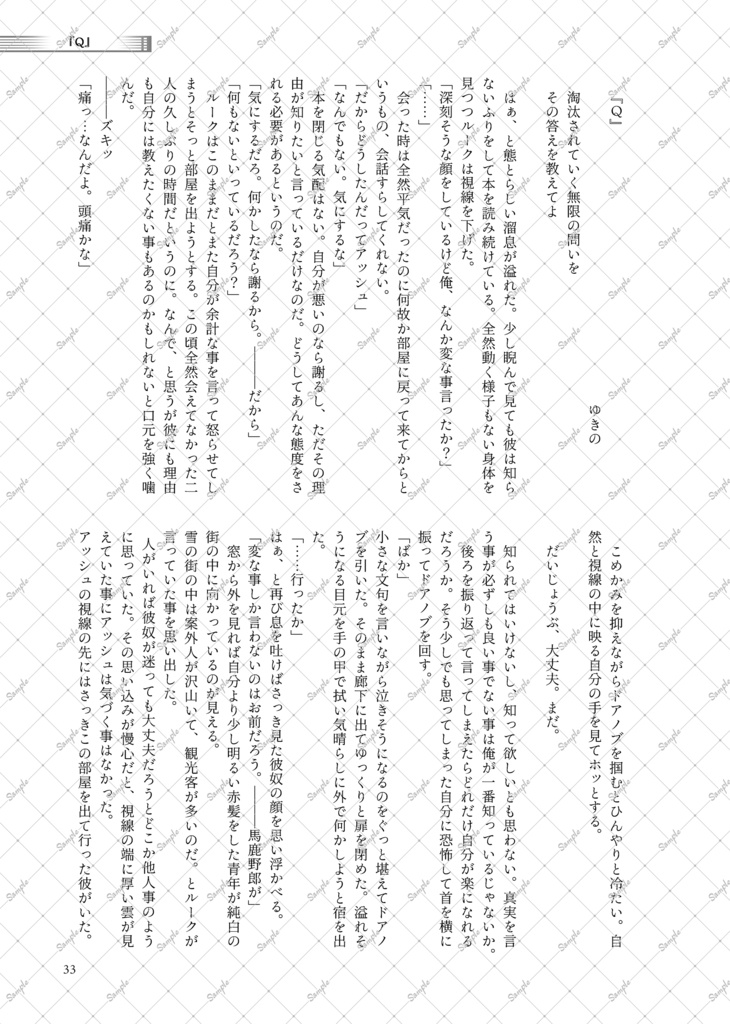 『Q』
『Q』
ゆきの
淘汰されていく無限の問いを
その答えを教えてよ
はぁ、と態とらしい溜息が溢れた。少し睨んで見ても彼は知ら
ないふりをして本を読み続けている。全然動く様子もない身体を
見つつルークは視線を下げた。
「深刻そうな顔をしているけど俺、なんか変な事言ったか？」
「……」
会った時は全然平気だったのに何故か部屋に戻って来てからと
いうもの、会話すらしてくれない。
「だからどうしたんだってアッシュ」
「なんでもない、気にするな」
本を閉じる気配はない。自分が悪いのなら謝るし、ただその理
由が知りたいと言っているだけなのだ。どうしてあんな態度をさ
れる必要があるというのだ。
「気にするだろ。何かしたなら謝るから。――だから」
「何もないといっているだろう？」
ルークはこのままだとまた自分が余計な事を言って怒らせてし
まうとそっと部屋を出ようとする。この頃全然会えてなかった二
人の久しぶりの時間だというのに。なんで、と思うが彼にも理由
も自分には教えたくない事もあるのかもしれないと口元を強く噛
んだ。
――ズキッ
「痛っ…なんだよ。頭痛かな」
こめかみを抑えながらドアノブを掴むとひんやりと冷たい。自
然と視線の中に映る自分の手を見てホッとする。
だいじょうぶ、大丈夫。まだ。
知られてはいけないし。知って欲しいとも思わない。真実を言
う事が必ずしも良い事でない事は俺が一番知っているじゃないか。
後ろを振り返って言ってしまえたらどれだけ自分が楽になれる
だろうか。そう少しでも思ってしまった自分に恐怖して首を横に
振ってドアノブを回す。
「ばか」
小さな文句を言いながら泣きそうになるのをぐっと堪えてドアノ
ブを引いた。そのまま廊下に出てゆっくりと扉を閉めた。溢れそ
うになる目元を手の甲で拭い気晴らしに外で何かしようと宿を出
た。
「……行ったか」
はぁ、と再び息を吐けばさっき見た彼奴の顔を思い浮かべる。
「変な事しか言わないのはお前だろう。――馬鹿野郎が」
窓から外を見れば自分より少し明るい赤髪をした青年が純白の
街の中に向かっているのが見える。
雪の街の中は案外人が沢山いて、観光客が多いのだ。とルークが
言っていた事を思い出した。
人がいれば彼奴が迷っても大丈夫だろうとどこか他人事のよう
に思っていた。その思い込みが慢心だと、視線の端に厚い雲が見
えていた事にアッシュは気づく事はなかった。
アッシュの視線の先にはさっきこの部屋を出て行った彼がいた。
33